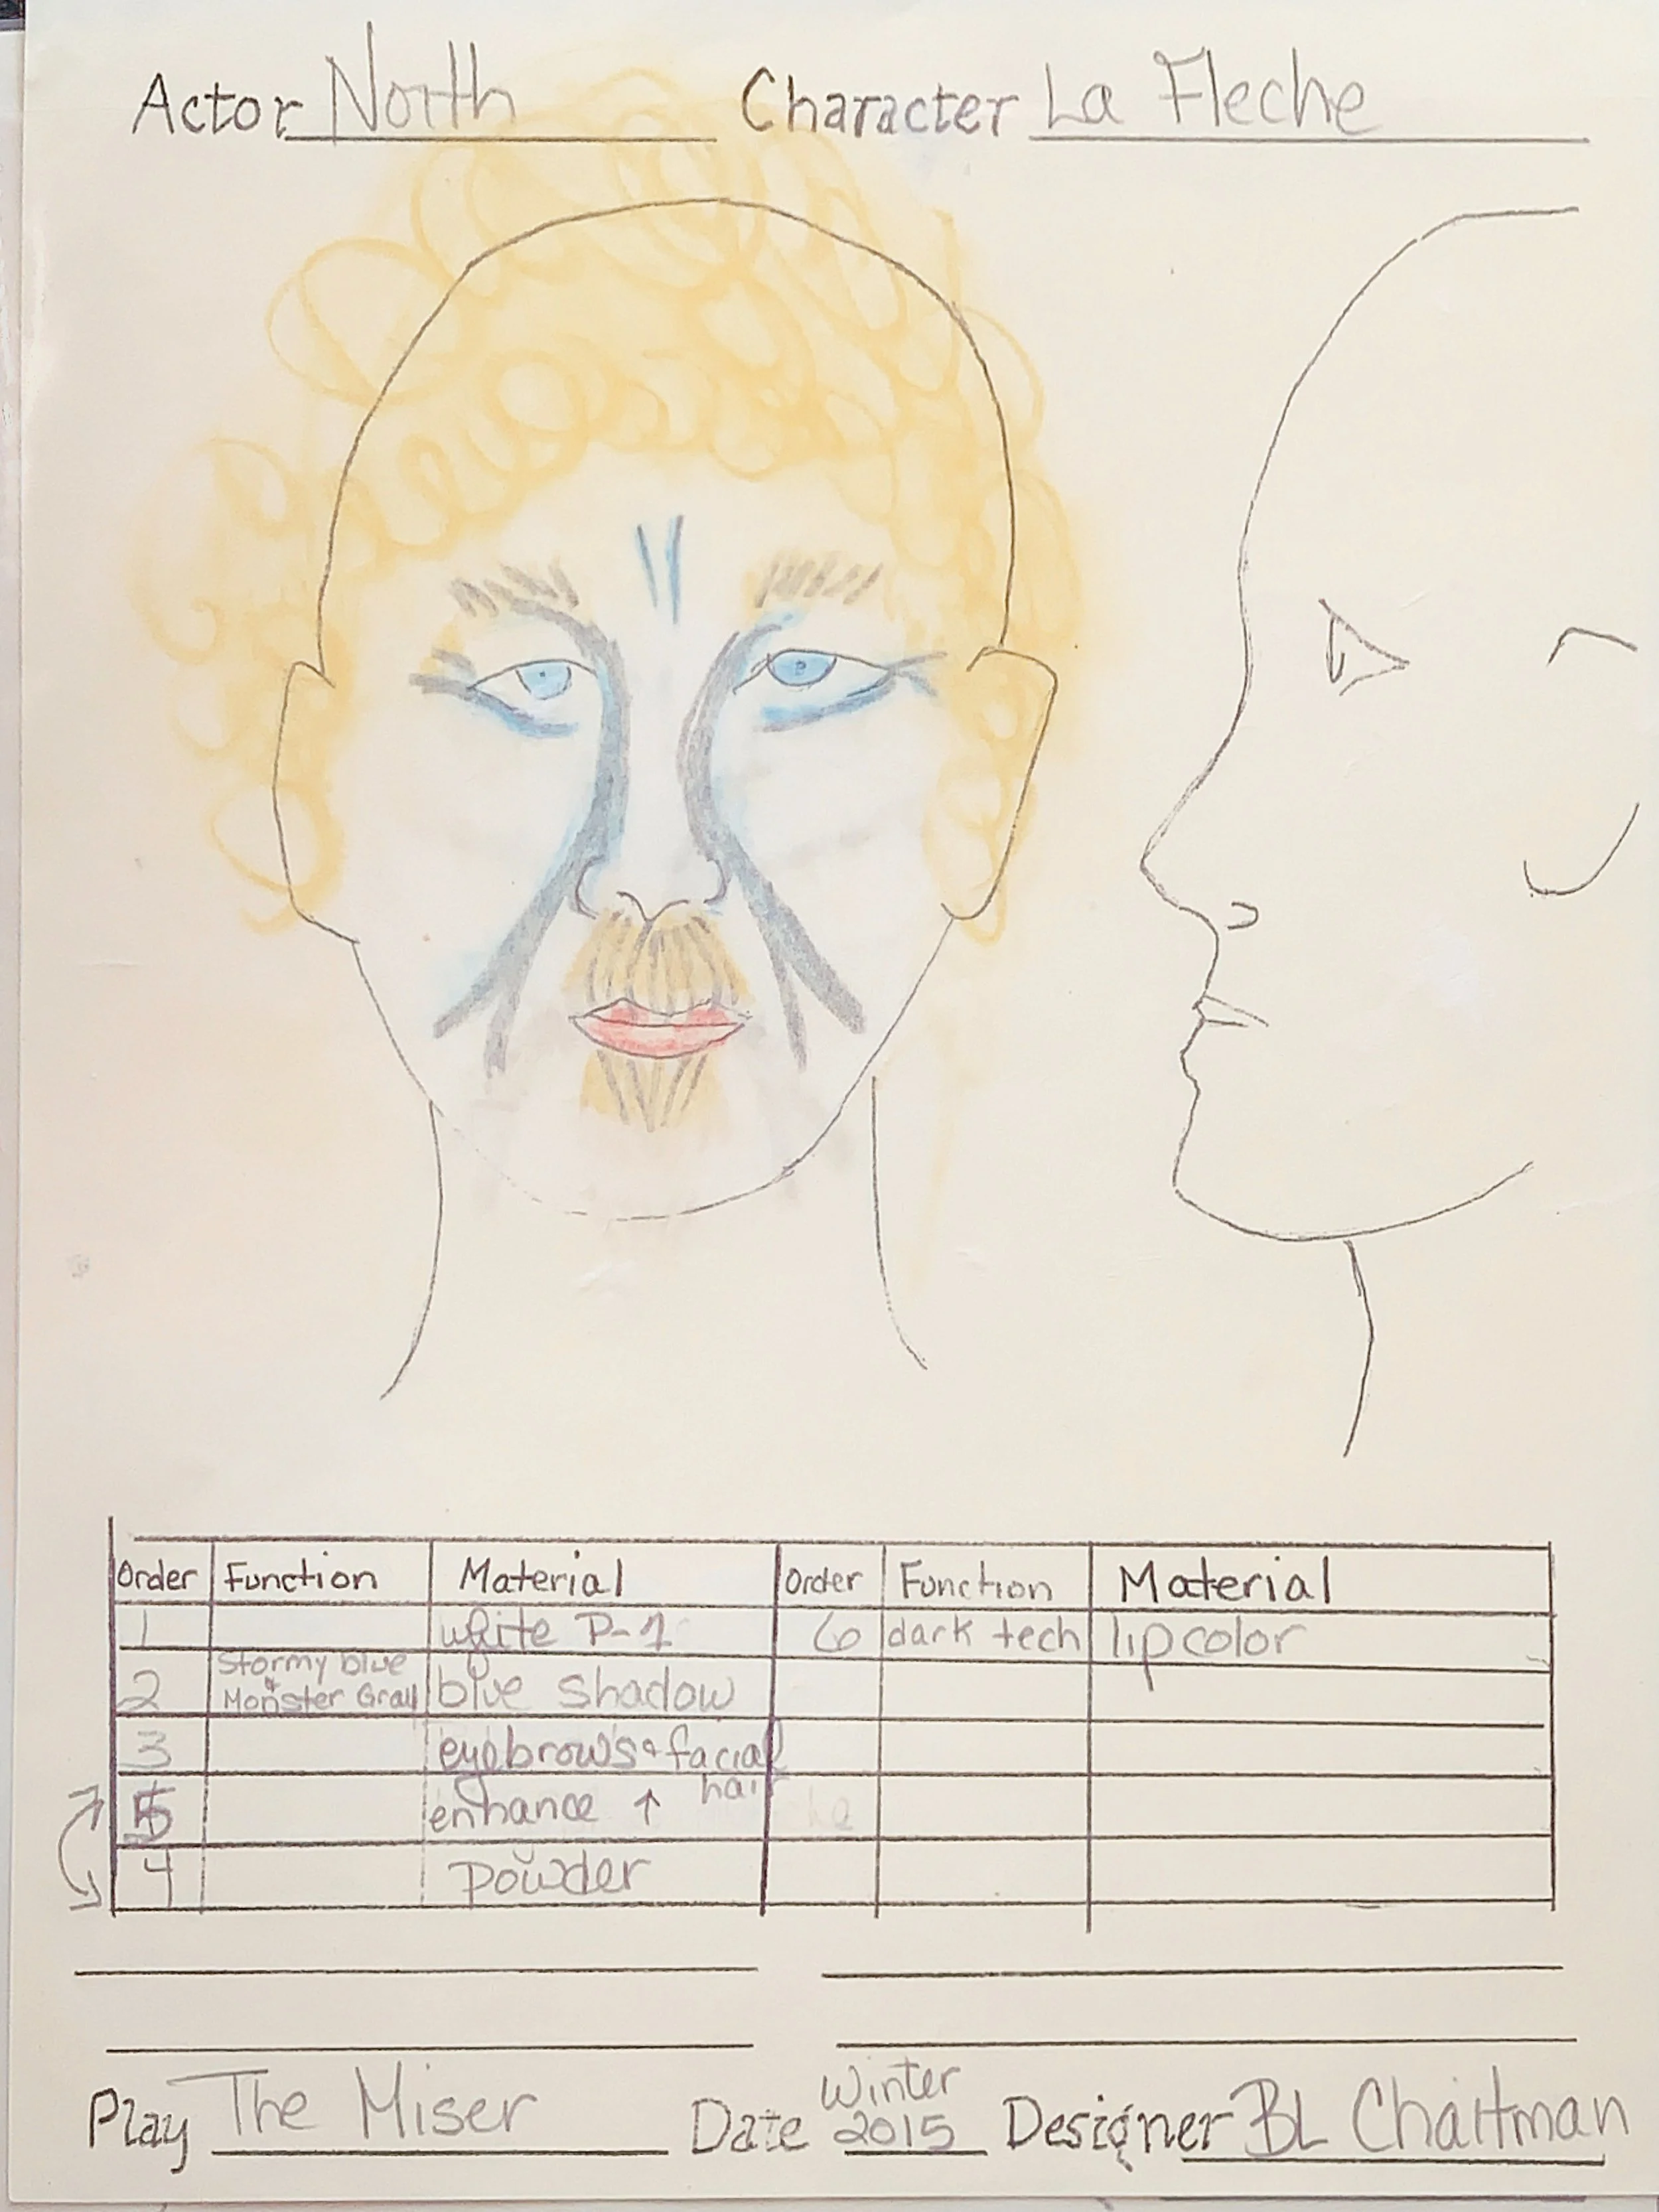 Actor North Character La Fleche
Order Function Material Order Function Material
1 white P-1 6 dark tech lip color
2 Stormy blue & Monster Gray blue shadow
3 eyebrows & facial hair
5 enhance ↑
4 powder
Play The Miser Date Winter 2015 Designer BL Chaitman